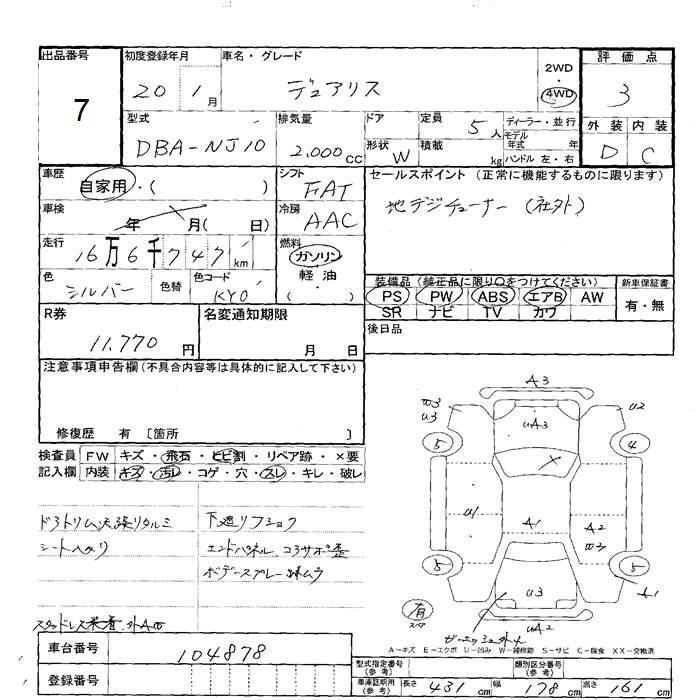 出品番号
7
初度登録年月
20 1月
車名・グレード
デュアリス
2WD
・
4WD
評価点
3
外装 内装
D C
型式
DBA-NJ10
排気量
2,000cc
ドア
形状 W
定員 5人
積載 kg
ディーラー・並行
モデル年式 年
ハンドル 左・右
車歴
自家用・( )
シフト
FAT
セールスポイント (正常に機能するものに限ります)
地デジチューナー (社外)
車検
年 月( 日)
冷房
AAC
走行
16万6千747km
燃料
ガソリン
軽油
( )
色
シルバー
色替
色コード
KY0
装備品 (純正品に限り○をつけてください)
PS PW ABS エアB AW
SR ナビ TV カワ
新車保証書
有・無
R券
11,770円
名変通知期限
月 日
後日品
注意事項申告欄(不具合内容等は具体的に記入して下さい)
修復歴 有 〔箇所 〕
検査員記入欄
FW キズ・飛石・ヒビ割・リペア跡・×要
内装 キズ・汚レ・コゲ・穴・スレ・キレ・破レ
シート
下廻りフショク
エンドパネル コアサポ歪
ボデースプレー
スタッドレス
A3
W3
U3
U2
5
4
uA3
U1
A1
A2
W3
5
5
A1
U3
有
スペア
uA2
A-キズ E-エクボ U-凹み W-補修跡 S-サビ C-腐食 XX-交換済
車台番号
104878
登録番号
型式指定番号(参考)
類別区分番号(参考)
車庫証明用(参考) 長さ 431cm 幅 178cm 高さ 161cm